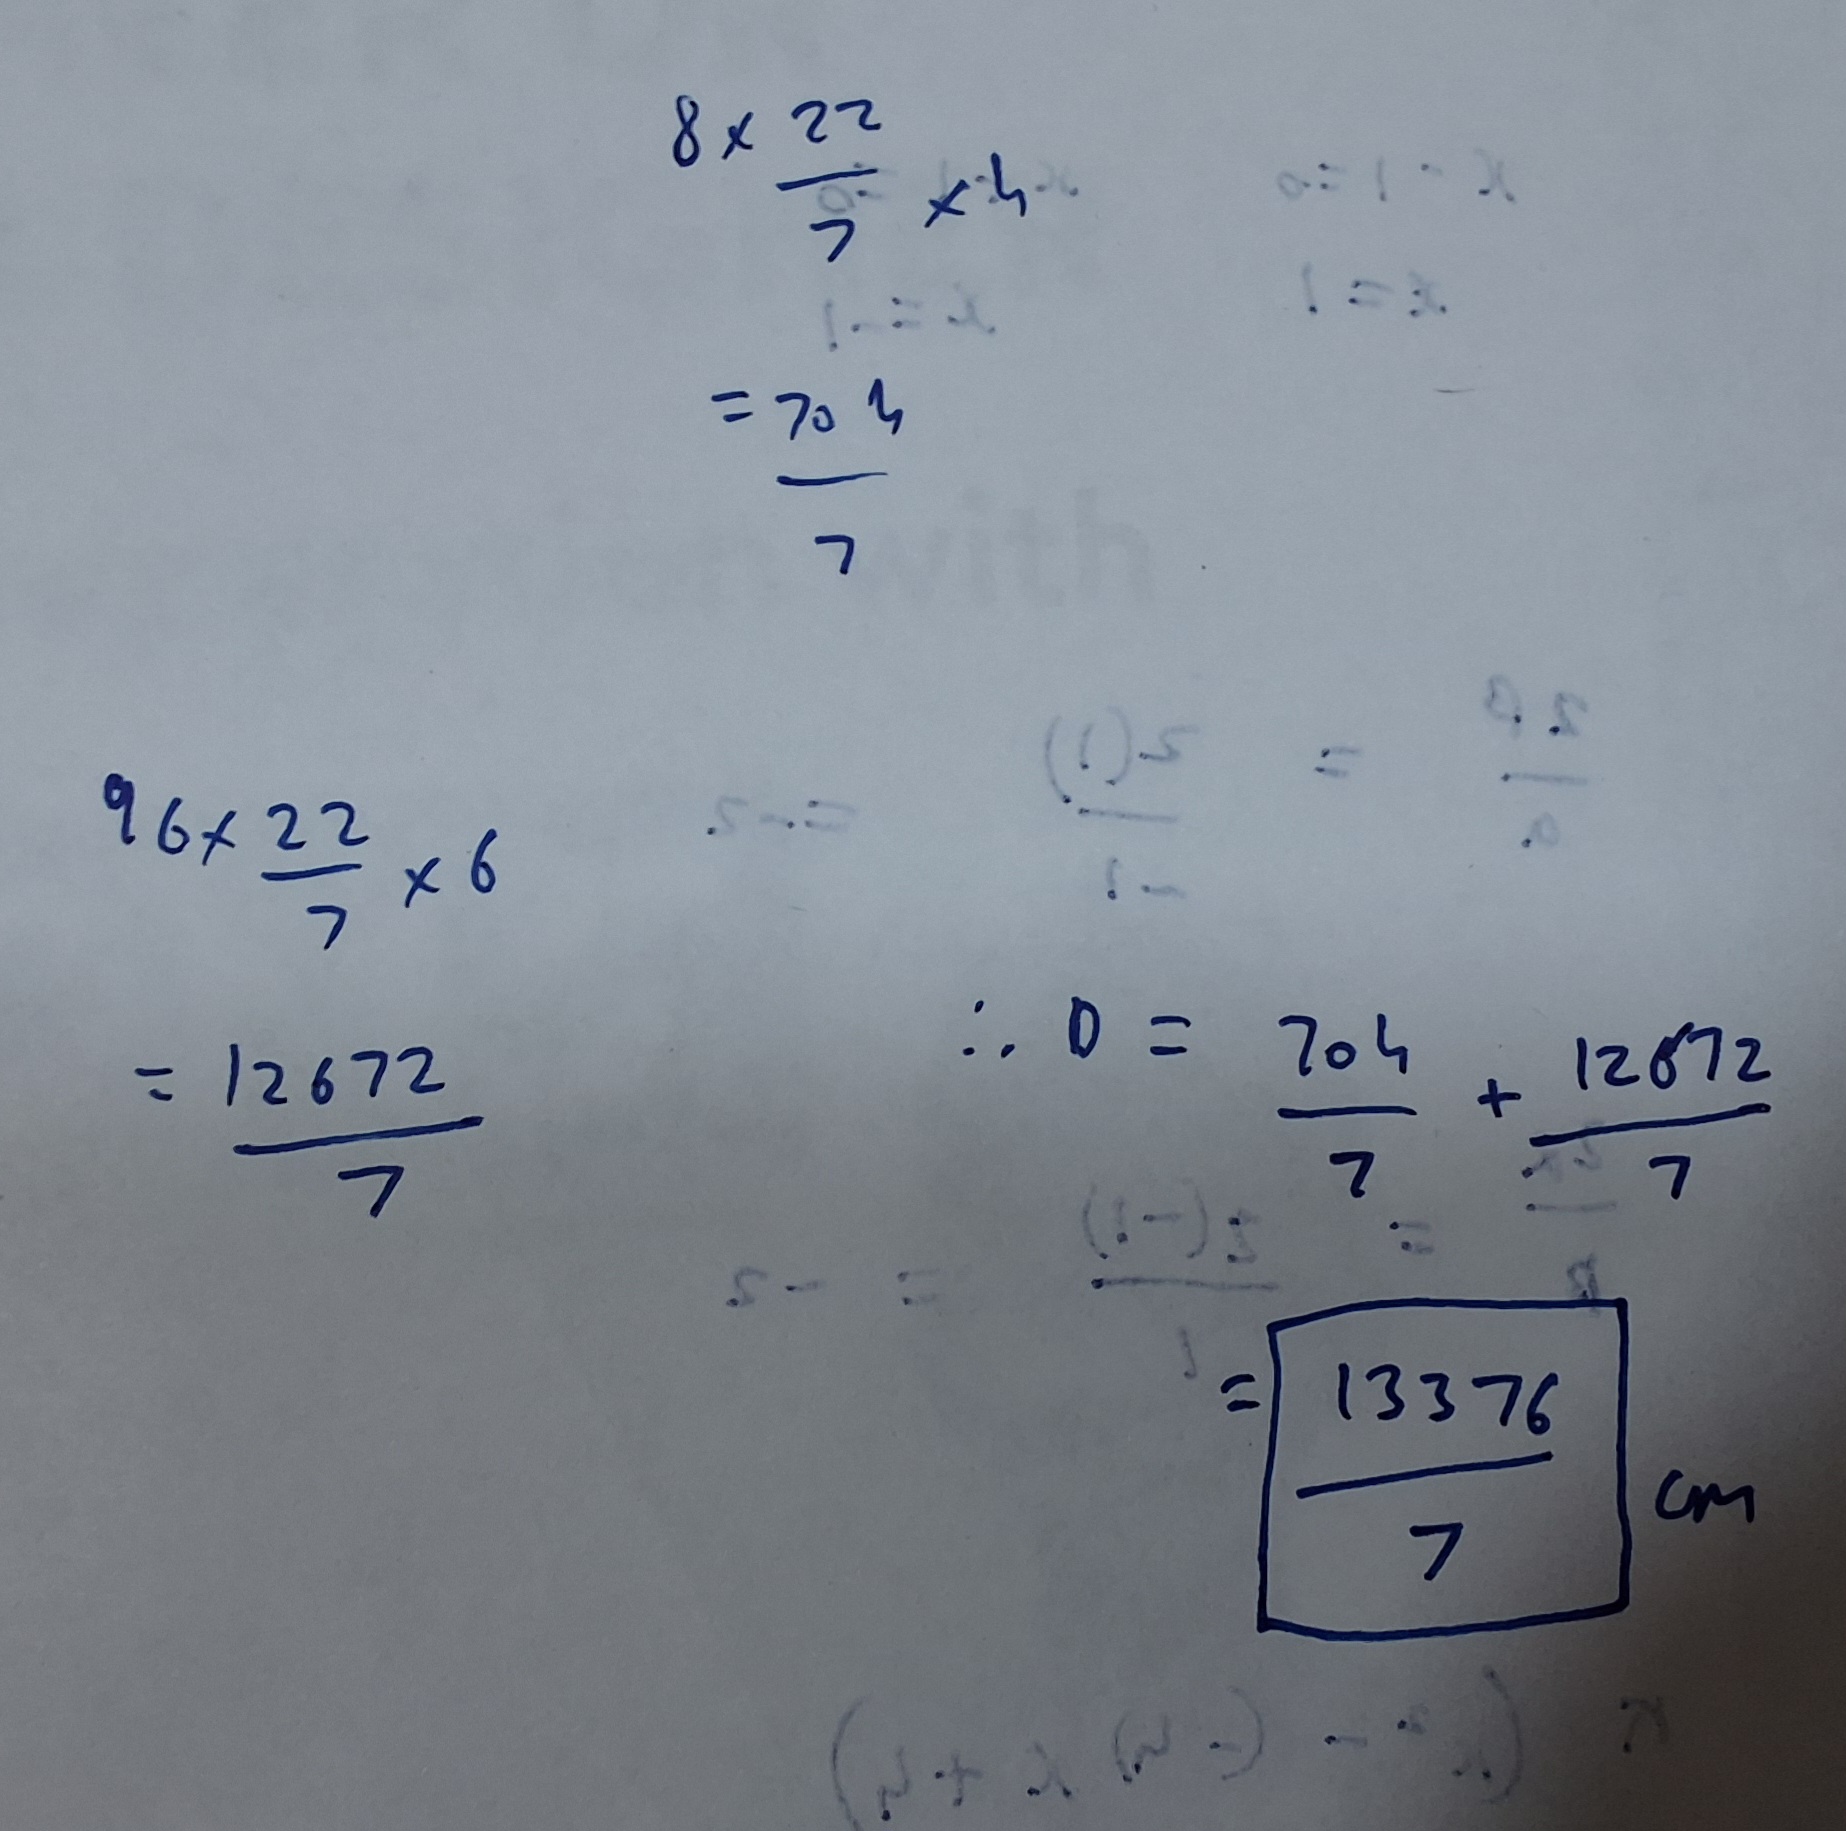 8 × 22/7 × 4
= 704/7
96 × 22/7 × 6
= 12672/7
∴ D = 704/7 + 12672/7
= 13376/7 cm